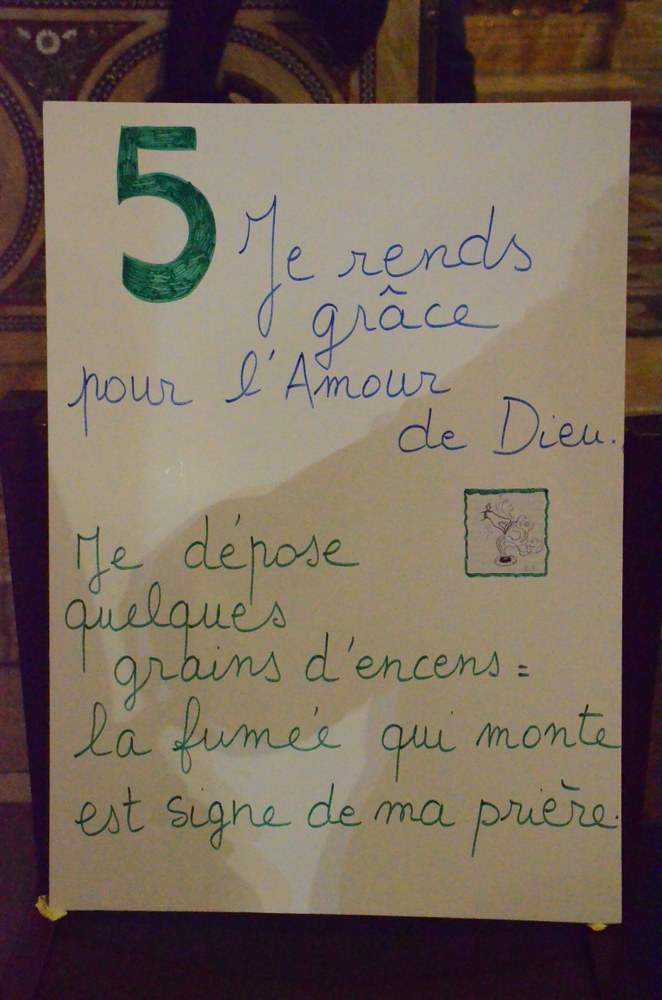 5
Je rends
grâce
pour l'Amour
de Dieu.
Je dépose
quelques
grains d'encens :
la fumée qui monte
est signe de ma prière.